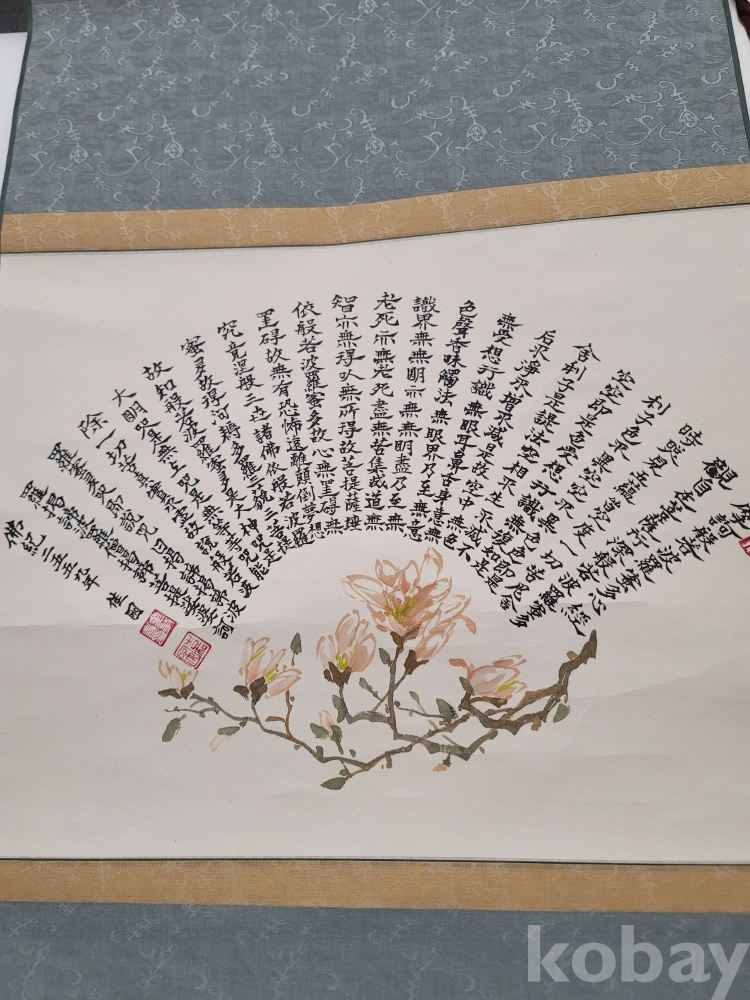 摩訶般若波羅蜜多心經
觀自在菩薩行深般若波羅蜜多
時照見五蘊皆空度一切苦厄舍
利子色不異空空不異色色即是
空空即是色受想行識亦復如是
舍利子是諸法空相不生不滅不
垢不淨不增不減是故空中無色
無受想行識無眼耳鼻舌身意無
色聲香味觸法無眼界乃至無意
識界無無明亦無無明盡乃至無
老死亦無老死盡無苦集滅道無
智亦無得以無所得故菩提薩埵
依般若波羅蜜多故心無罣碍無
罣碍故無有恐怖遠離顛倒夢想
究竟涅般三世諸佛依般若波羅
蜜多故得阿耨多羅三藐三菩提
故知般若波羅蜜多是大神咒是
大明咒是無上咒是無等等咒能
除一切苦真實不虛故說般若波
羅蜜多咒即說咒曰揭諦揭諦波
羅揭諦波羅僧揭諦菩提娑婆訶
佛紀二五五九年
kobay